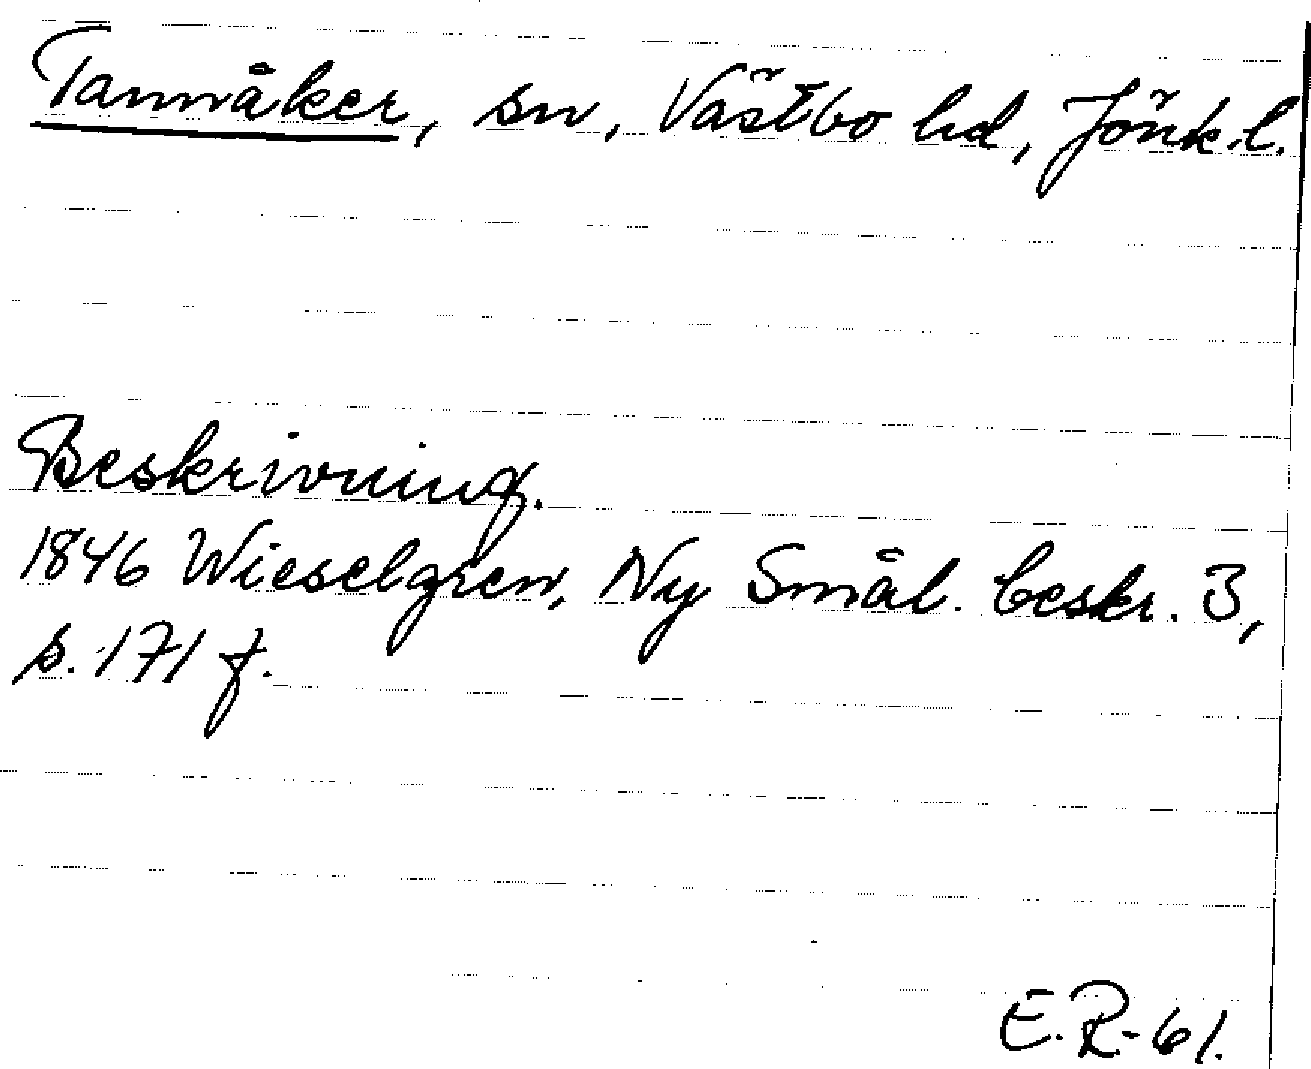 Tannåker, sn, Västbo hd, Jönk.l.
Beskrivning.
1846 Wieselgren, Ny Smål. beskr. 3,
s. 171 f.
E.R-61.